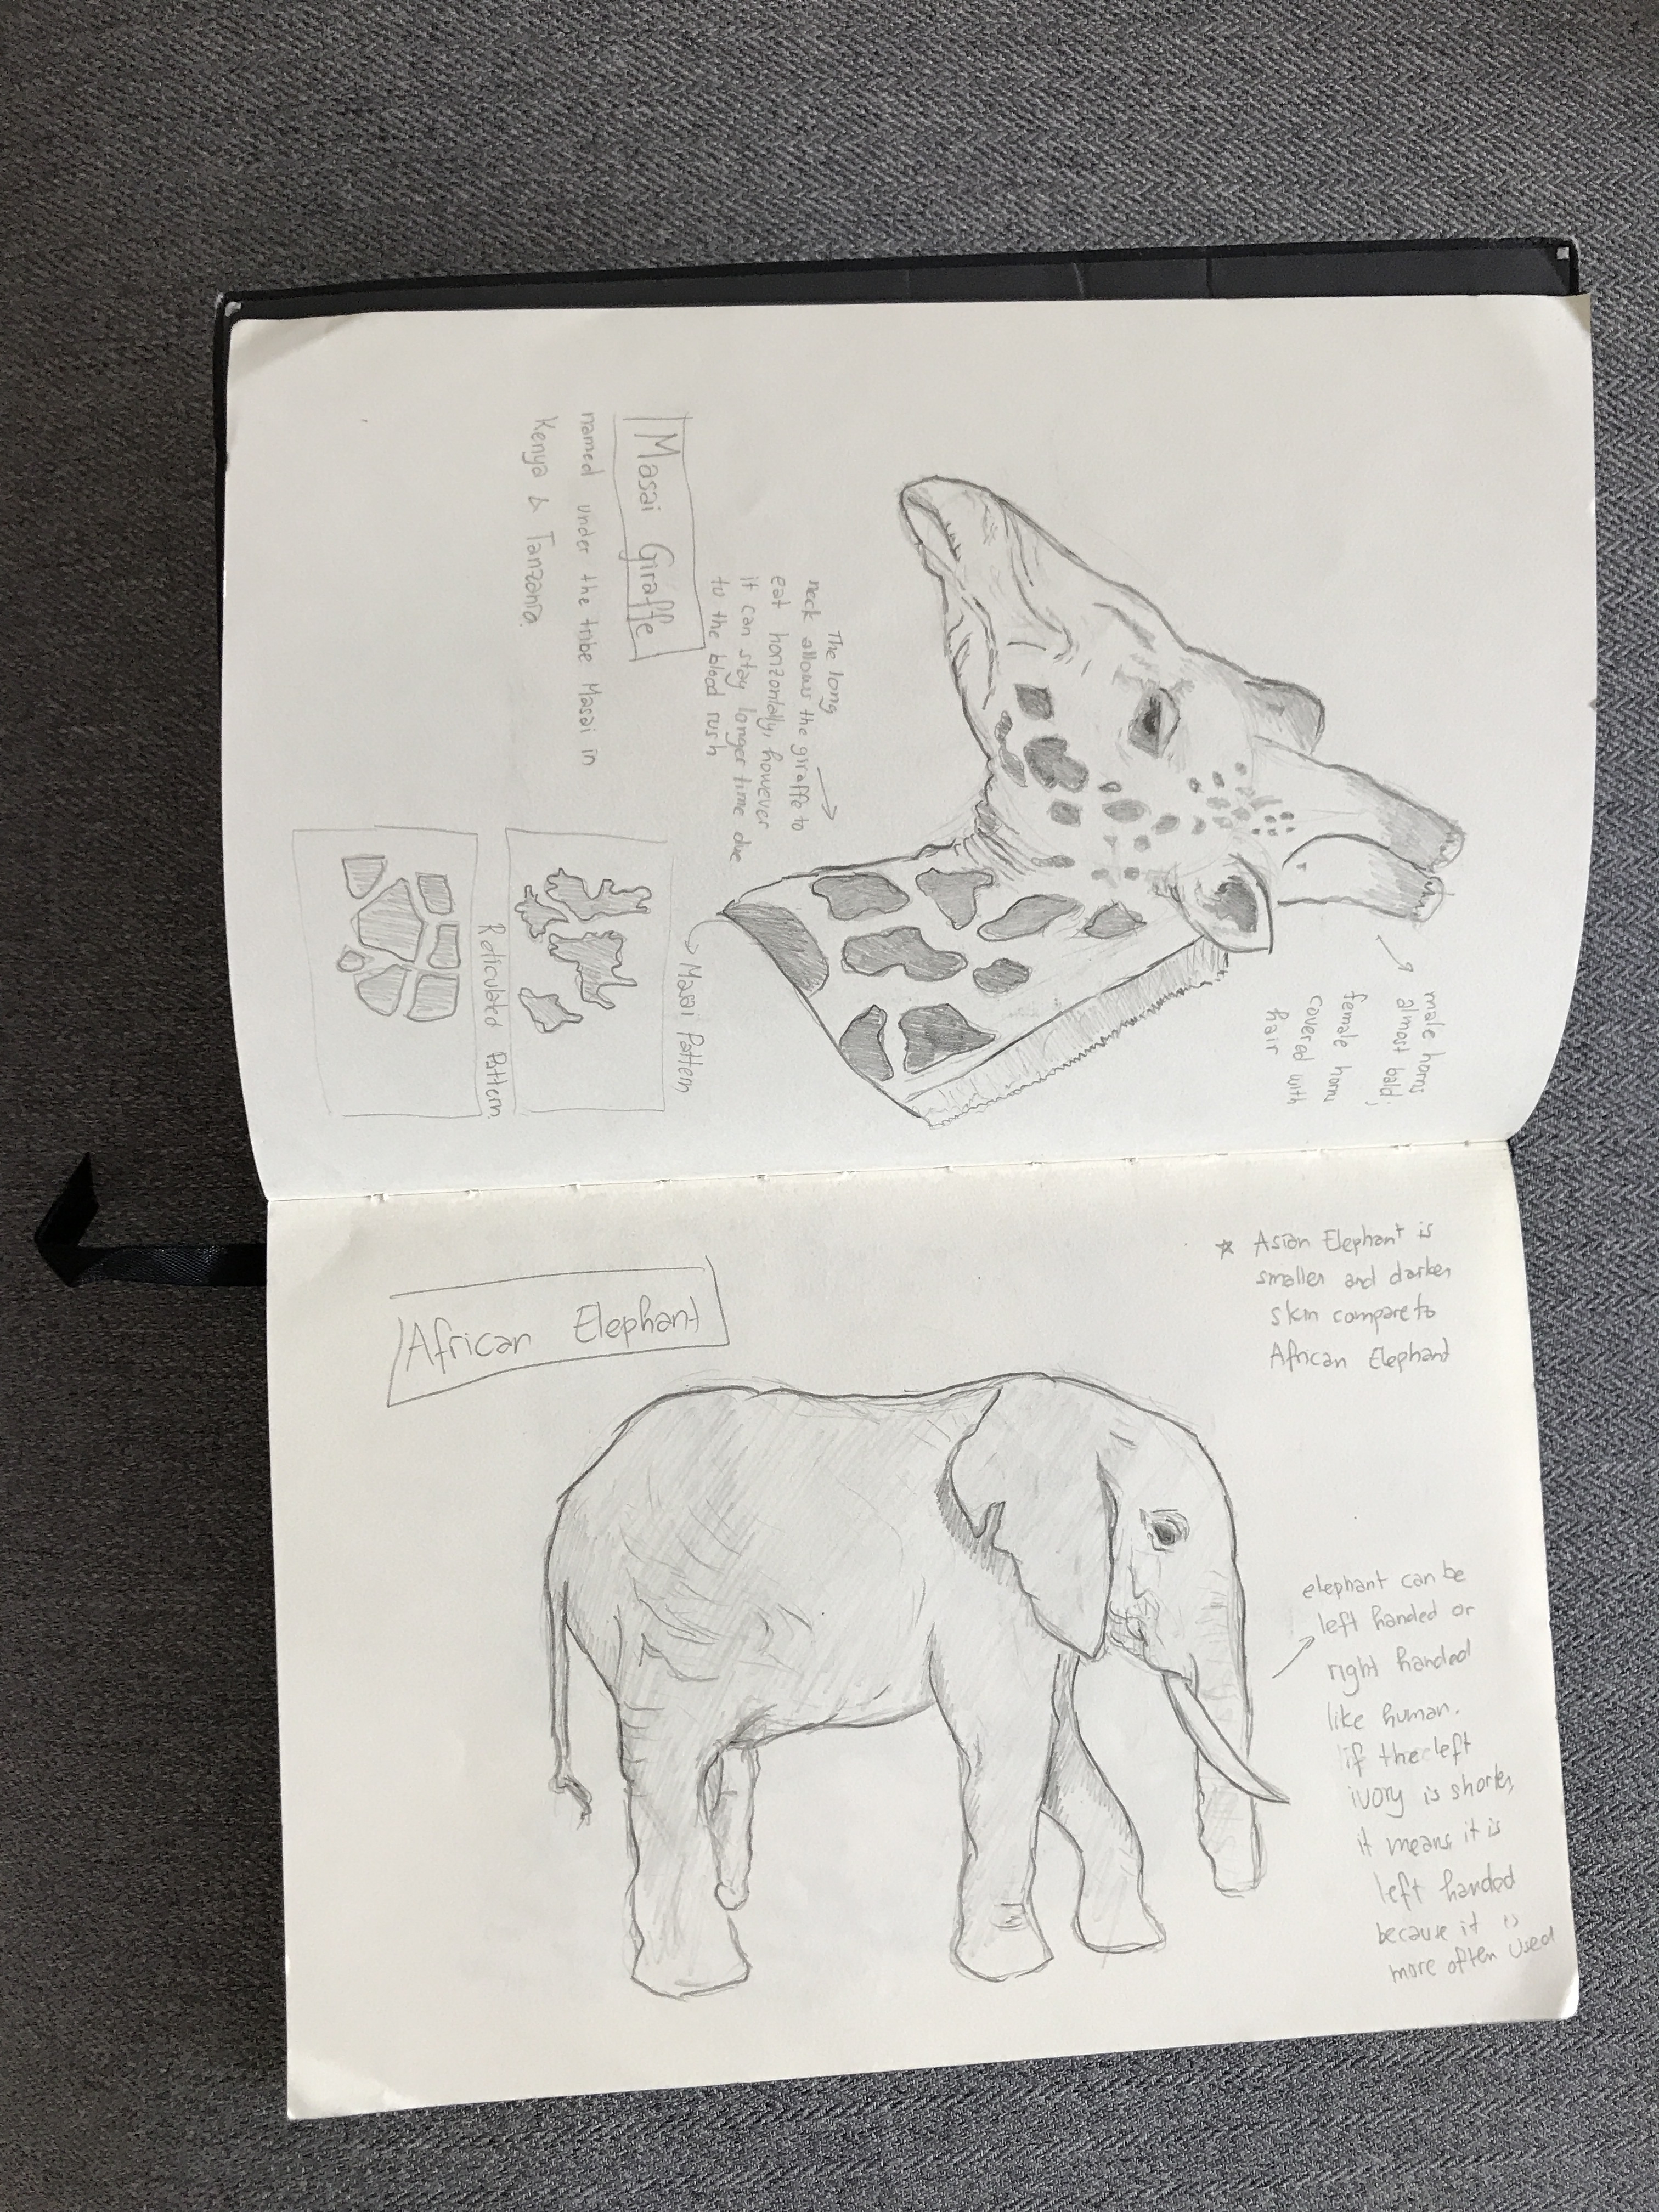 male horns
almost bald;
female horns
covered with
hair
The long
neck allows the giraffe to
eat horizontally, however
it can stay longer time due
to the blood rush
Masai Giraffe
named under the tribe Masai in
Kenya & Tanzania.
Masai Pattern
Reticulated Pattern
African Elephant
☆ Asian Elephant is
smaller and darker
skin compare to
African Elephant
elephant can be
left handed or
right handed
like human.
if the left
ivory is shorter,
it means it is
left handed
because it is
more often used